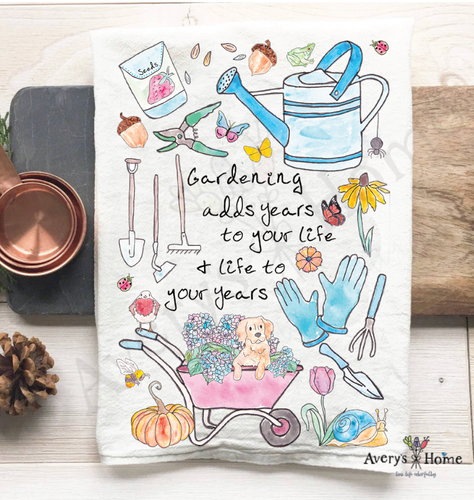 Seeds
Gardening
adds years
to your life
& life to
your years
Avery's Home
live life colorfully